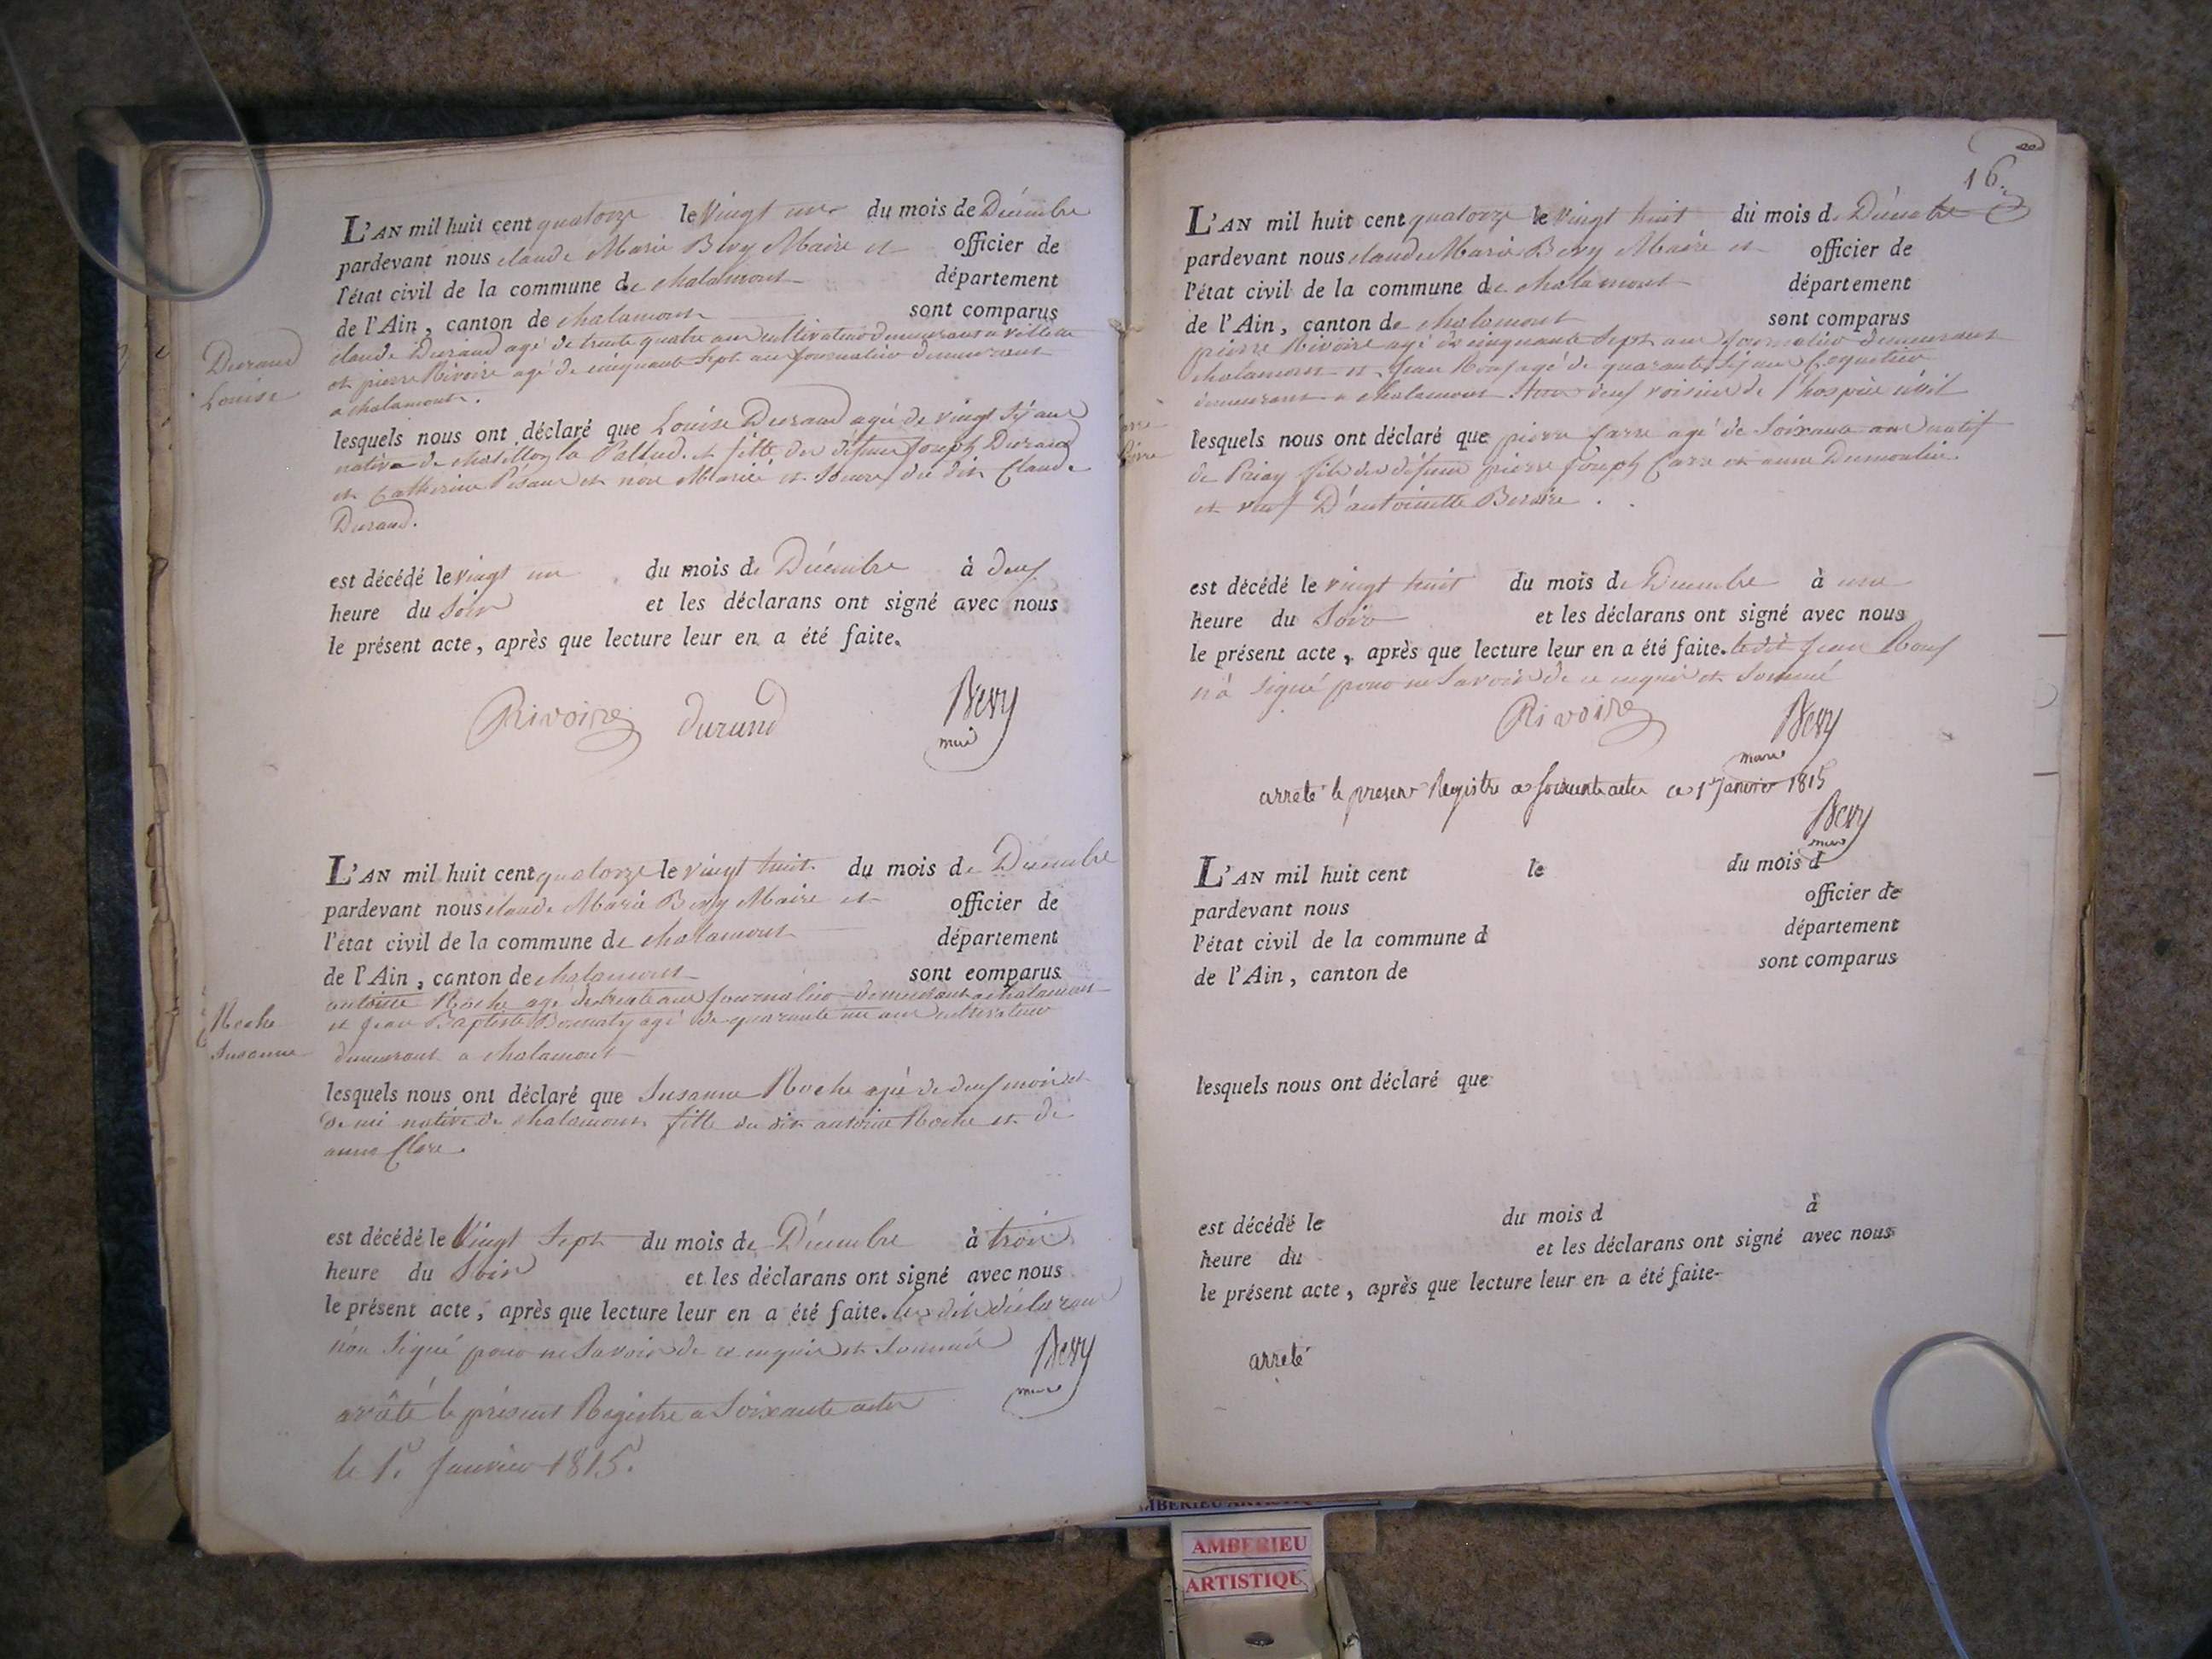 L'AN mil huit cent quatorze le Vingt un du mois de Décembre
pardevant nous claude Marie Bevy Maire et officier de
l'état civil de la commune de chalamont département
de l'Ain, canton de chalamont sont comparus
claude Durand agé de trente quatre ans cultivateur demeurant a
et pierre Rivoire agé de cinquante Sept ans journalier demeurant
a chalamont.
Durand
Louise
lesquels nous ont déclaré que Louise Durand agée de vingt ans
native de chatillon la Pallud et fille des défunts Joseph Durand
et Catherine et non Mariée et Soeur du dit Claude
Durand.
est décédé le vingt un du mois de Décembre à deux
heure du Soir et les déclarans ont signé avec nous
le présent acte, après que lecture leur en a été faite.
Rivoire durand Bevy
maire
L'AN mil huit cent quatorze le vingt huit du mois de Décembre
pardevant nous claude Marie Bevy Maire et officier de
l'état civil de la commune de chalamont département
de l'Ain, canton de chalamont sont comparus
antoine Roche agé de trente ans journalier demeurant a chalamont
et jean Baptiste agé de quarante un ans cultivateur
demeurant a chalamont
Roche
Susanne
lesquels nous ont déclaré que Susanne Roche agée de deux mois et
demi native de chalamont fille du dit antoine Roche et de
anne Clere.
est décédé le Vingt Sept du mois de Décembre à trois
heure du Soir et les déclarans ont signé avec nous
le présent acte, après que lecture leur en a été faite. les dits déclarans
n'on Signé pour ne Savoir de ce enquis et Sommés
Bevy
maire
arrêté le présent Registre a Soixante actes
le 1er Janvier 1815.
16.
L'AN mil huit cent quatorze le Vingt huit du mois de Décembre
pardevant nous claude Marie Bevy Maire et officier de
l'état civil de la commune de chalamont département
de l'Ain, canton de chalamont sont comparus
pierre Rivoire agé de cinquante Sept ans journalier demeurant
chalamont et Jean Roux agé de quarante Coquetier
demeurant a chalamont tous deux voisins de l'hospice civil
lesquels nous ont déclaré que pierre Carre agé de Soixante ans natif
de Priay fils des défunts pierre joseph Carre et anne Dumoulin
et veuf D'antoinette
est décédé le vingt huit du mois de Décembre à une
heure du Soir et les déclarans ont signé avec nous
le présent acte, après que lecture leur en a été faite. le dit Jean Roux
n'a Signé pour ne Savoir de ce enquis et Sommé
Rivoire Bevy
maire
arreté le present Registre a soixante actes ce 1er janvier 1815
Bevy
maire
L'AN mil huit cent le du mois d
pardevant nous officier de
l'état civil de la commune d département
de l'Ain, canton de sont comparus
lesquels nous ont déclaré que
est décédé le du mois d à
heure du et les déclarans ont signé avec nous
le présent acte, après que lecture leur en a été faite.
arreté
AMBERIEU
ARTISTIQU